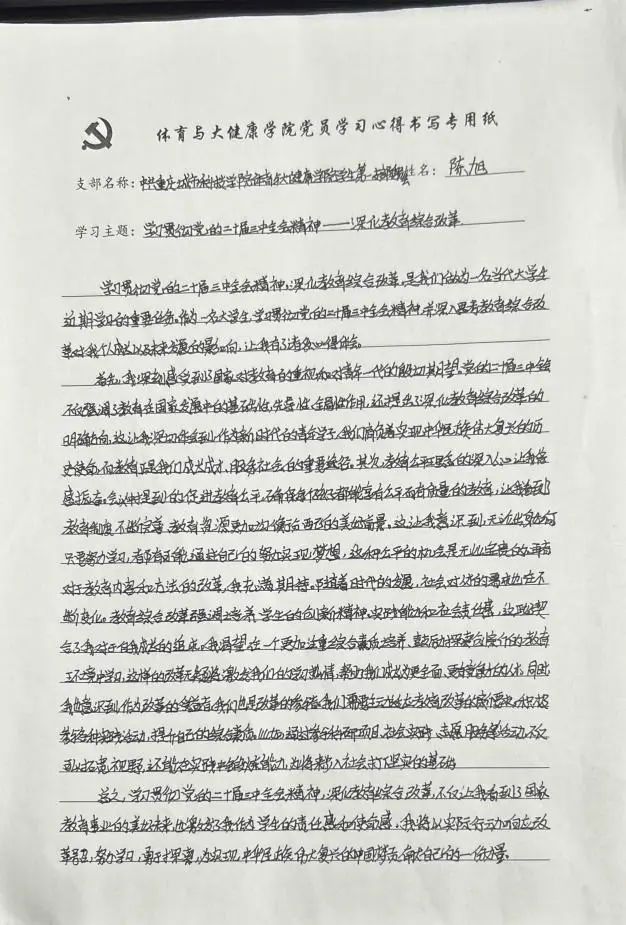 体育与大健康学院党员学习心得书写专用纸
支部名称：中共重庆城市科技学院体育与大健康学院学生第一支部委员会姓名：陈旭
学习主题：学习贯彻党的二十届三中全会精神——深化教育综合改革
学习贯彻党的二十届三中全会精神，深化教育综合改革，是我们做为一名当代大学生
近期学习的重要任务。作为一名大学生，学习贯彻党的二十届三中全会精神，并深入思考教育综合改
革对我个人成长以及未来发展的影响，让我有了诸多心得体会。
首先，我深刻感受到了国家对教育的重视和对青年一代的殷切期望。党的二十届三中全会
不仅强调了教育在国家发展中的基础性、先导性、全局性作用，还提出了深化教育综合改革的
明确方向。这让我深切体会到，作为新时代的青年学子，我们肩负着实现中华民族伟大复兴的历
史使命，而教育正是我们成长成才、服务社会的重要途径。其次，教育公平理念的深入人心让我倍
感振奋。会议中提到的促进教育公平，确保每个孩子都能享有公平而有质量的教育，让我看到了
教育制度不断完善、教育资源更加均衡分配的美好前景。这让我意识到，无论出身如何
只要努力学习，都有可能通过自己的努力实现梦想，这种公平的机会是无比宝贵的。再者
对于教育内容和方法的改革，我充满期待。随着时代的发展，社会对人才的需求也在不
断变化。教育综合改革强调培养学生的创新精神、实践能力和社会责任感，这正契
合了我对于自我成长的追求。我渴望在一个更加注重综合素质培养、鼓励探索与合作的教育
环境中学习，这样的改革无疑将激发我们的学习热情，帮助我们成长为更全面、更有竞争力的人才。同时
我也意识到，作为改革的受益者，我们也是改革的参与者，我们需要主动适应教育改革的新要求，积极
参与各种实践活动，提升自己的综合素质。比如，通过参与科研项目、社会实践、志愿服务等活动，不仅
可以拓宽视野，还能在实践中锻炼能力，为将来步入社会打下坚实的基础。
总之，学习贯彻党的二十届三中全会精神，深化教育综合改革，不仅让我看到了国家
教育事业的美好未来，也激发了我作为学生的责任感和使命感。我将以实际行动响应改
革号召，努力学习，勇于探索，为实现中华民族伟大复兴的中国梦贡献自己的一份力量。